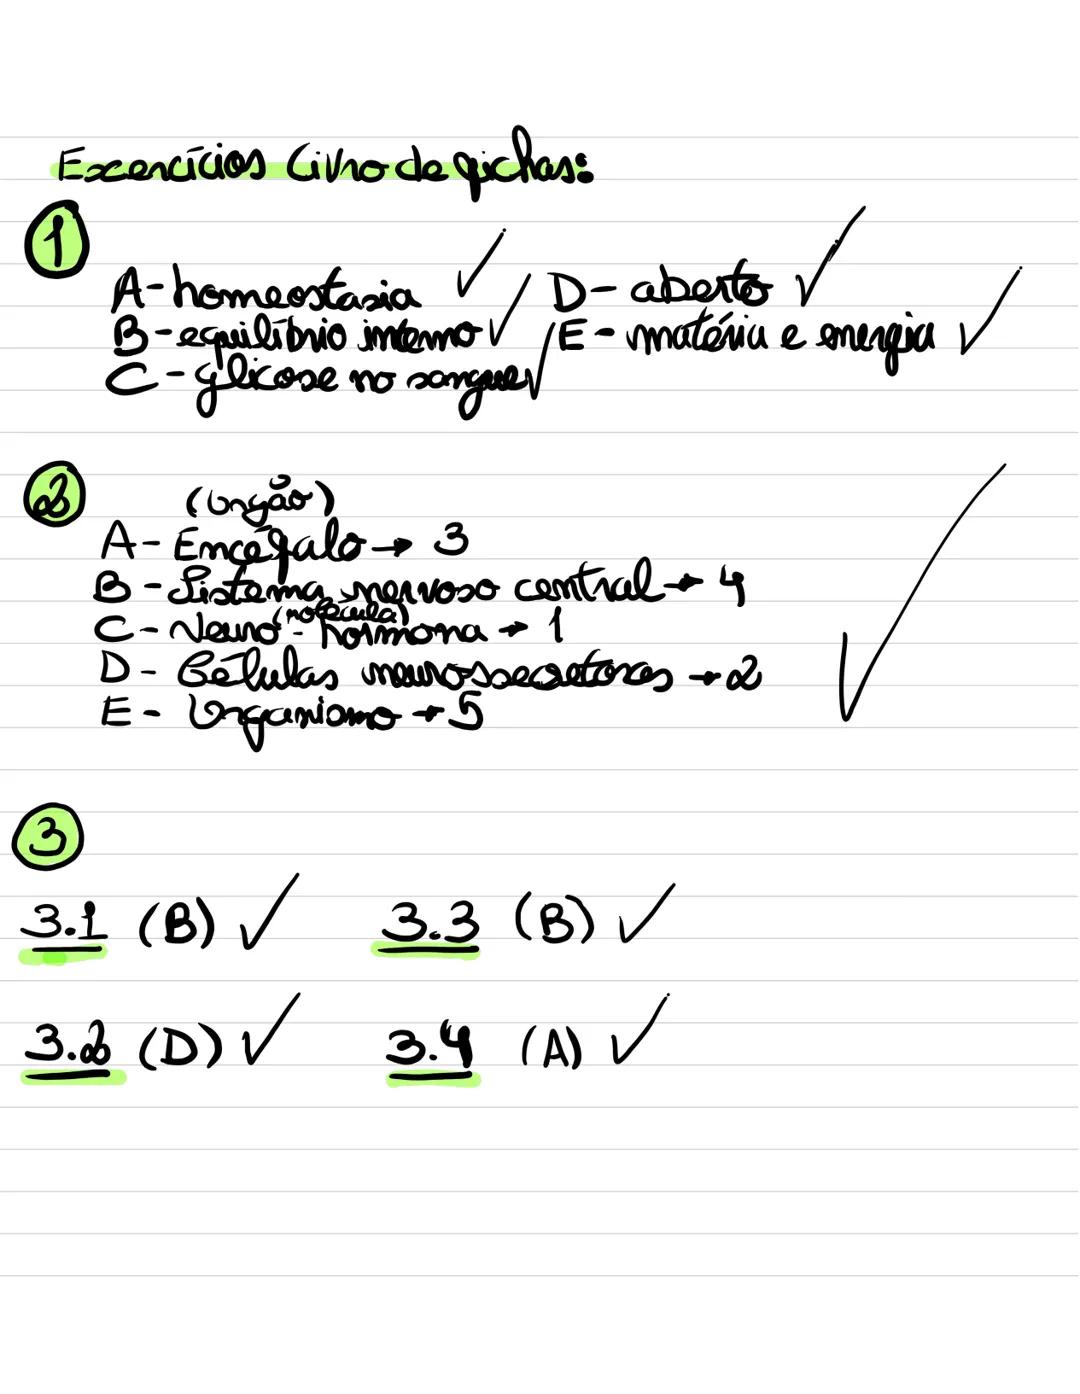 Exercícios Livro de fichas:
1
A-homeostasia ✓
B-equilíbrio interno ✓
C-glicose no sangue ✓
D-aberto ✓
E-matéria e energia ✓
2
(órgão)
A-Encéfalo → 3
B-Sistema nervoso central → 4
(molécula)
C-Neuro-hormona → 1
D-Células neurossecretoras → 2
E-Organismo → 5
3
3.1 (B) ✓ 3.3 (B) ✓
3.2 (D) ✓ 3.4 (A) ✓